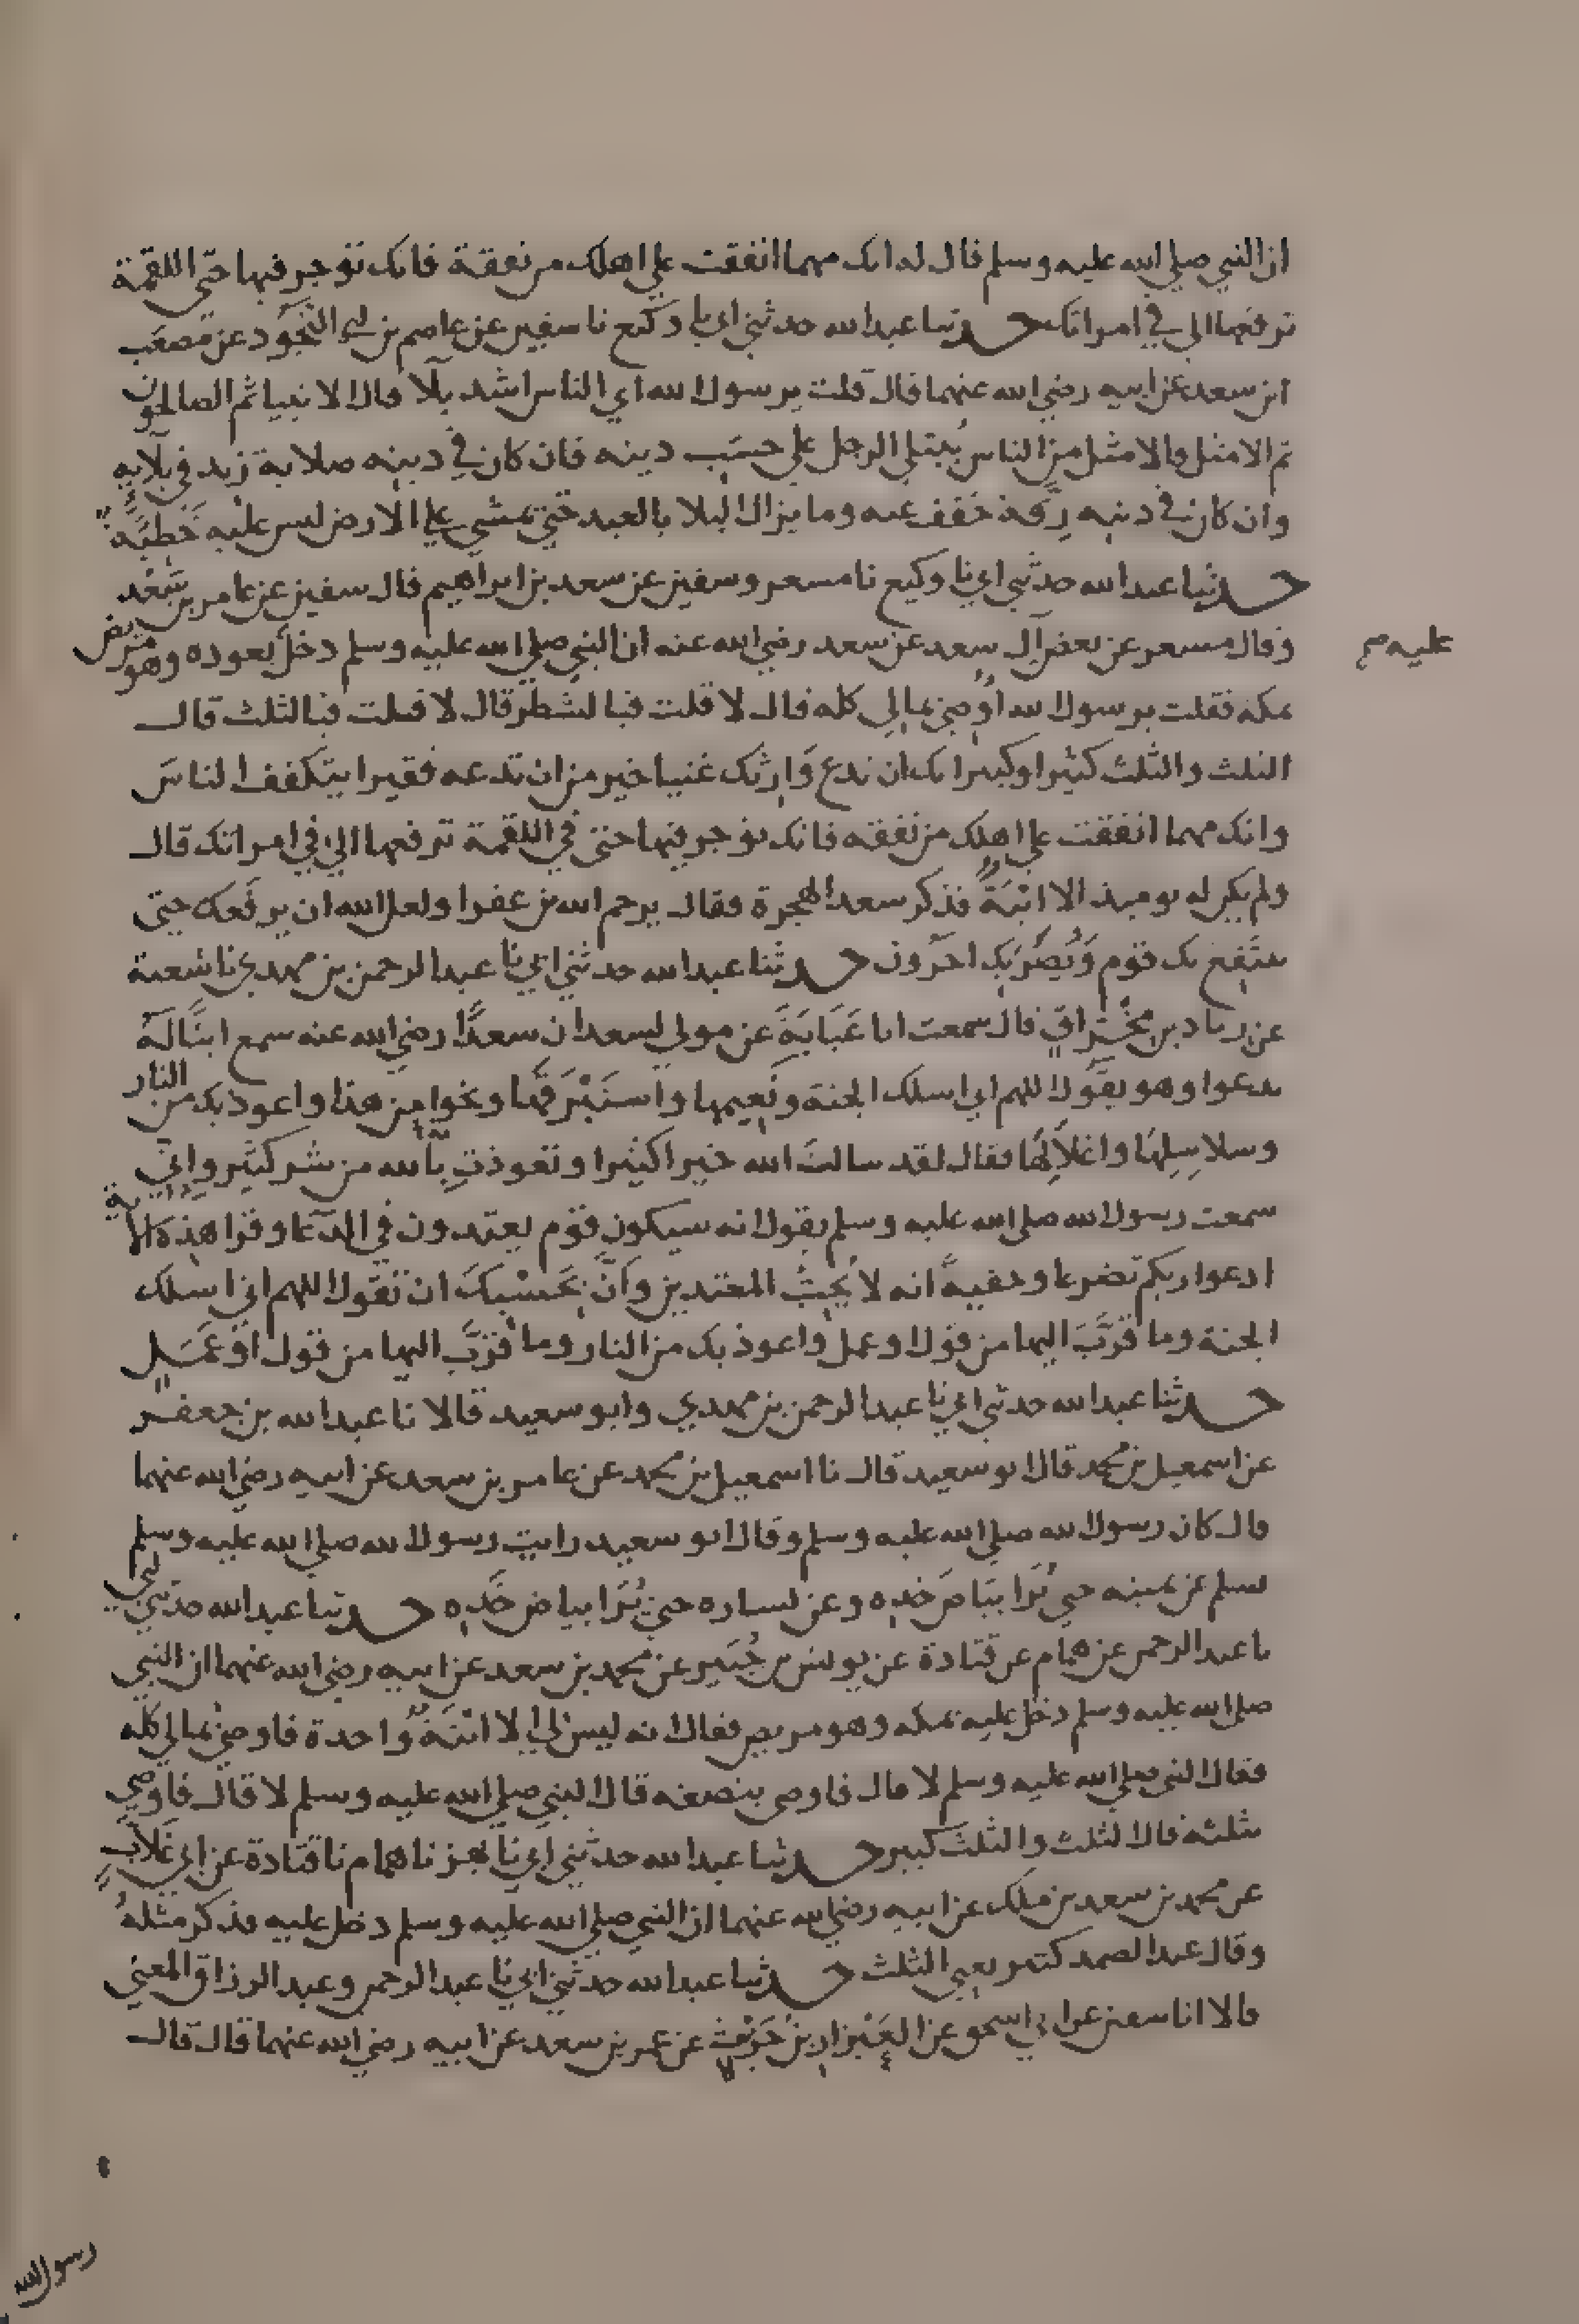 ان النبي صلي الله عليه وسلم قال له انك مهما انفقت علي اهلك من نفقة فانك توجر فيها حتي اللقمة
ترفعها الي في امراتك حدثنا عبد الله حدثني ابي نا وكيع نا سفين عن عاصم بن ابي النجود عن مصعب
ابن سعد عن ابيه رضي الله عنهما قال قلت يرسول الله اي الناس اشد بلآ قال الانبيا ثم الصالحون
ثم الامثل والامثل من الناس يُبتلي الرجل علي حسب دينه فان كان في دينه صلابة زيد في بلآيه
وان كان في دينه رِقة خفف عنه وما يزال البلا بالعبد حتي يمشي علي الارض ليس عليه خطيَّة
حدثنا عبد الله حدثني ابي نا وكيع نا مسعر وسفين عن سعد بن ابراهيم قال سفين عن عامر بن سَعْد
وقال مسعر عن بعض آل سعد عن سعد رضي الله عنه ان النبي صلي الله عليه وسلم دخل يعوده وهو مريض
عليه م
بمكة فقلت يرسول الله اُوصي بمالي كله قال لا قلت فبالشطر قال لا قلت فبالثلث قال
الثلث والثلث كثيرا وكبير انك ان تدع وَارثك غنيا خير من ان تدعه فقيرا يتكفف الناس
وانك مهما انفقت علي اهلك من نفقه فانك توجر فيها حتي في اللقمة ترفعها الي في امراتك قال
ولم يكن له يوميذ الا ابْنَةٌ فذكر سعد الهجرة فقال يرحم الله بن عفرا ولعل الله ان يرفَعك حتي
ينتَفِع بك قوم وَيُضَرَّ بِك اخرون حدثنا عبد الله حدثني ابي نا عبد الرحمن بن مهدي نا شعبة
عن زياد بن مِخْراقٍ قال سمعت ابا عَبَايَةَ عن مولي لسعد ان سعدًا رضي الله عنه سمع ابنًا لَهُ
يدعوا وهو يقول اللهم اني اسلك الجنة ونَعِيمها واستَبْرَقَها ونحوا من هذا واعوذ بك من النار
وسلاسِلِهَا واغلالِهَا فقال لقد سالت الله خيرا كثيرا وتعوذت بِالله من شر كثير وانِّي
سمعت رسول الله صلي الله عليه وسلم يقول انه سيكون قوم يعتدون في الدُّعا وقرا هذه الاية
ادعوا ربكم تضرعا وخفيةً انه لا يُحِبُّ المعتدين وَانَّ بِحَسْبِكَ ان تقول اللهم اني اسلك
الجنة وما قرَّبَ اليها من قول او عمل واعوذ بك من النار وما قرَّب اليها من قول او عَمَلٍ
حدثنا عبد الله حدثني ابي نا عبد الرحمن بن مهدي وابو سعيد قالا نا عبد الله بن جعفر
عن اسمعيل بن محمد قال ابو سعيد قال نا اسمعيل بن محمد عن عامر بن سعد عن ابيه رضي الله عنهما
قال كان رسول الله صلي الله عليه وسلم وقال ابو سعيد رايت رسول الله صلي الله عليه وسلم
يسلم عن يمينه حتي يُرَا بيَاضَ خدِه وعن يساره حتي يُرَا بياض خَدِه حدثنا عبد الله حدثني ابي
نا عبد الرحمن عن همام عن قتادة عن يونس بن جُبَير عن محمد بن سعد عن ابيه رضي الله عنهما ان النبي
صلي الله عليه وسلم دخل عليه بمكه وهو مريض فقال انه ليس لي الا ابْنَةٌ واحدة فاوصي بمالي كلِّه
فقال النبي صلي الله عليه وسلم لا قال فاوصي بنصفه قال النبي صلي الله عليه وسلم لا قال فاوصي
بثلثه قال الثلث والثلث كبير حدثنا عبد الله حدثني ابي نا بهز نا همام نا قتادة عن ابي غَلَّابٍ
عن محمد بن سعد بن ملك عن ابيه رضي الله عنهما ان النبي صلي الله عليه وسلم دخل عليه فذكر مثلهُ
وقال عبد الصمد كثير يعني الثلث حدثنا عبد الله حدثني ابي نا عبد الرحمن وعبد الرزاق المعني
قالا انا سفين عن ابي اسحق عن العَيْزارِ بن حُرَيْثٍ عن عمر بن سعد عن ابيه رضي الله عنهما قال قال
رسول الله